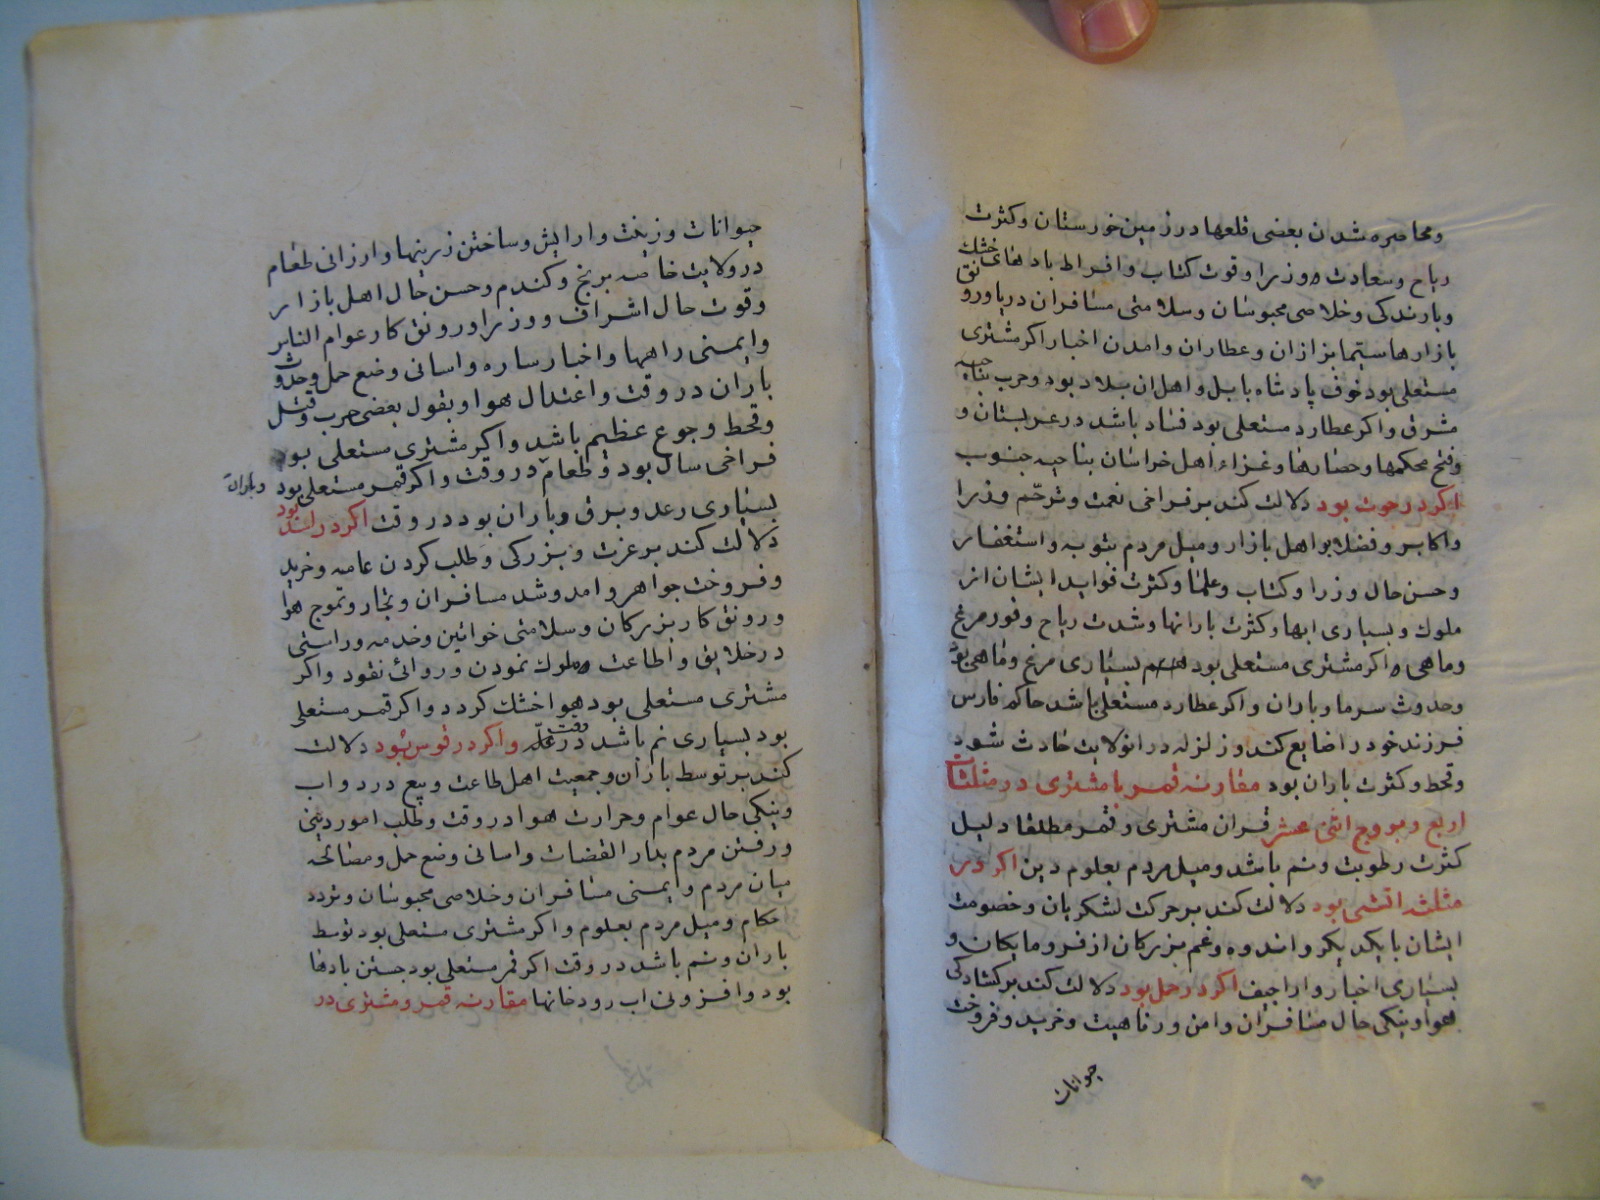 ومحاصره شدن بعضی قلعها در زمین خورستان وکثرت
ریاح وسعادت وزرا وقوت کتاب وافراط بادهای خشک
وبارندکی وخلاصی محبوسان وسلامتی مسافران دریا ورونق
بازارها سیّما بزازان وعطاران وامدن اخبار اکر مشتری
مستعلی بود خوف پادشاه بابل واهل ان بلاد بود وحرب بناحیه
مشرق واکر عطارد مستعلی بود فساد باشد در عربستان و
وفتح محکمها وحصارها وغزاء اهل خراسان بناحیه جنوب
اکر در حوت بود دلالت کند بر فراخی نعمت وترحّم وزرا
واکابر وفضلا بر اهل بازار ومیل مردم بتوبه واستغفار
وحسن حال وزرا وکتاب وعلما وکثرت فواید ایشان از
ملوک وبسیاری ابها وکثرت بارانها وشدت ریاح وفور مرغ
وماهی واکر مشتری مستعلی بود هم بسیاری مرغ وماهی بود
وحدوث سرما وباران واکر عطارد مستعلی باشد حاکم فارس
فرزند خود را ضایع کند وزلزله در انولایت حادث شود
وقحط وکثرت باران بود مقارنه قمر با مشتری در مثلثات
اربع وبروج اثنی عشر قران مشتری وقمر مطلقا دلیل
کثرت رطوبت ونم باشد ومیل مردم بعلوم دین اکر در
مثلثه اتشی بود دلالت کند بر حرکت لشکریان وخصومت
ایشان با یکدیکر واندوه وغم بزرکان از فرومایکان و
بسیاری اخبار واراجیف اکر در حمل بود دلالت کند بر کشادکی
هوا ونیکی حال مسافران وامن ورفاهیت وخرید وفروخت
حیوانات
حیوانات وزینت وارایش وساختن زرینها وارزانی طعام
در ولایت خاصه برنج وکندم وحسن حال اهل بازار
وقوت حال اشراف ووزرا ورونق کار عوام الناس
وایمنی راهها واخبار ساره واسانی وضع حمل وحدوث
باران در وقت واعتدال هوا وبقول بعضی حرب وقتل
وقحط وجوع عظیم باشد واکر مشتری مستعلی بود
فراخی سال بود وطعام در وقت واکر قمر مستعلی بود
وباران
بسیاری رعد وبرق وباران بود در وقت اکر در اسد بود
دلالت کند بر عزت وبزرکی وطلب کردن عامه وخرید
وفروخت جواهر وامد وشد مسافران وتجار وتموج هوا
ورونق کار بزرکان وسلامتی خواتین وخدمه وراستی
در خلایق واطاعت ملوک نمودن وروائی نقود واکر
مشتری مستعلی بود هوا خشک کردد واکر قمر مستعلی
بود بسیاری نم باشد در وقت غلّه واکر در قوس بود دلالت
کند بر توسط باران وجمعیت اهل طاعت وبیع در دواب
ونیکی حال عوام وحرارت هوا در وقت وطلب امور دینی
ورفتن مردم بدار القضات واسانی وضع حمل ومصالحه
میان مردم وایمنی مسافران وخلاصی محبوسان وتردد
حکام ومیل مردم بعلوم واکر مشتری مستعلی بود توسط
باران ونم باشد در وقت اکر قمر مستعلی بود جستن بادها
بود وافزونی اب رودخانها مقارنه قمر ومشتری در